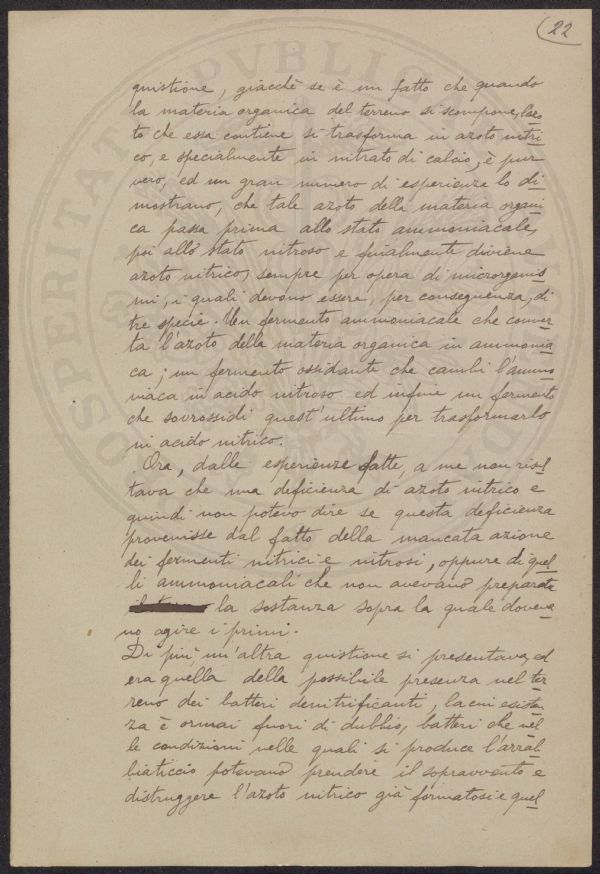 22
quistione, giacchè se è un fatto che quando
la materia organica del terreno si scompone, l'azo
to che essa contiene si trasforma in azoto nitri
co, e specialmente in nitrato di calcio, è pur
vero, ed un gran numero di esperienze lo di
mostrano, che tale azoto della materia organi
ca passa prima allo stato ammoniacale,
poi allo stato nitroso e finalmente diviene
azoto nitrico, sempre per opera di microrganis
mi, i quali devono essere, per conseguenza, di
tre specie. Un fermento ammoniacale che conver
ta l'azoto della materia organica in ammonia
ca; un fermento ossidante che cambi l'ammo
niaca in acido nitroso ed infine un fermento
che sovrossidi quest'ultimo per trasformarlo
in acido nitrico.
Ora, dalle esperienze fatte, a me non risul
tava che una deficienza di azoto nitrico e
quindi non potevo dire se questa deficienza
provenisse dal fatto della mancata azione
dei fermenti nitrici e nitrosi, oppure di quel
li ammoniacali che non avevano preparata
la sostanza sopra la quale doveva
no agire i primi.
Di più, un'altra quistione si presentava, ed
era quella della possibile presenza nel ter
reno dei batteri denitrificanti, la cui esisten
za è ormai fuori di dubbio, batteri che nel
le condizioni nelle quali si produce l'arrab
biaticcio potevano prendere il sopravvento e
distruggere l'azoto nitrico già formatosi e quel